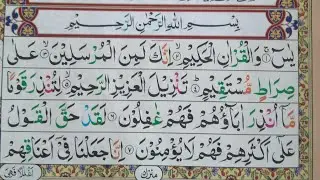 بِسْمِ اللّٰهِ الرَّحْمٰنِ الرَّحِيْمِ
يٰسٓ ۚ﴿۱﴾ وَالْقُرْاٰنِ الْحَكِيْمِ ۙ﴿۲﴾ اِنَّكَ لَمِنَ الْمُرْسَلِيْنَ ۙ﴿۳﴾ عَلٰى
صِرَاطٍ مُّسْتَقِيْمٍ ؕ﴿۴﴾ تَنْزِيْلَ الْعَزِيْزِ الرَّحِيْمِ ۙ﴿۵﴾ لِتُنْذِرَ قَوْمًا
مَّاۤ اُنْذِرَ اٰبَآؤُهُمْ فَهُمْ غٰفِلُوْنَ ﴿۶﴾ لَقَدْ حَقَّ الْقَوْلُ
عَلٰٓى اَكْثَرِهِمْ فَهُمْ لَا يُؤْمِنُوْنَ ﴿۷﴾ اِنَّا جَعَلْنَا فِيْۤ اَعْنَاقِهِمْ
منزل